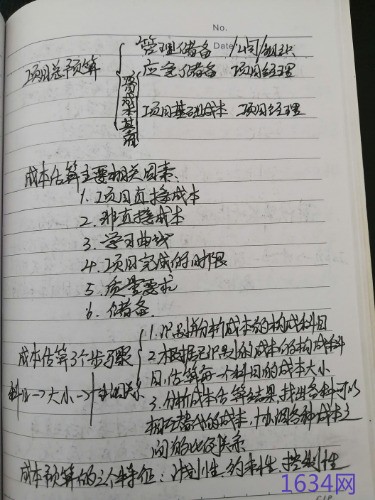 No.
Date
管理储备 公司/组织
项目总预算 应急储备 项目经理
成本基准
项目基础成本 项目经理
成本估算主要相关因素:
1. 项目直接成本
2. 非直接成本
3. 学习曲线
4. 项目完成的时限
5. 质量要求
6. 储备
成本估算3个步骤
科目→大小→关系
1. 识别分析成本的构成科目
2. 根据已识别的成本的构成科
目,估算每一个科目的成本大小
3. 分析成本估算结果,找出各种可以
相互替代的成本,协调各种成本之
间的比例关系
成本预算的三个特征:计划性、约束性、控制性
1634网